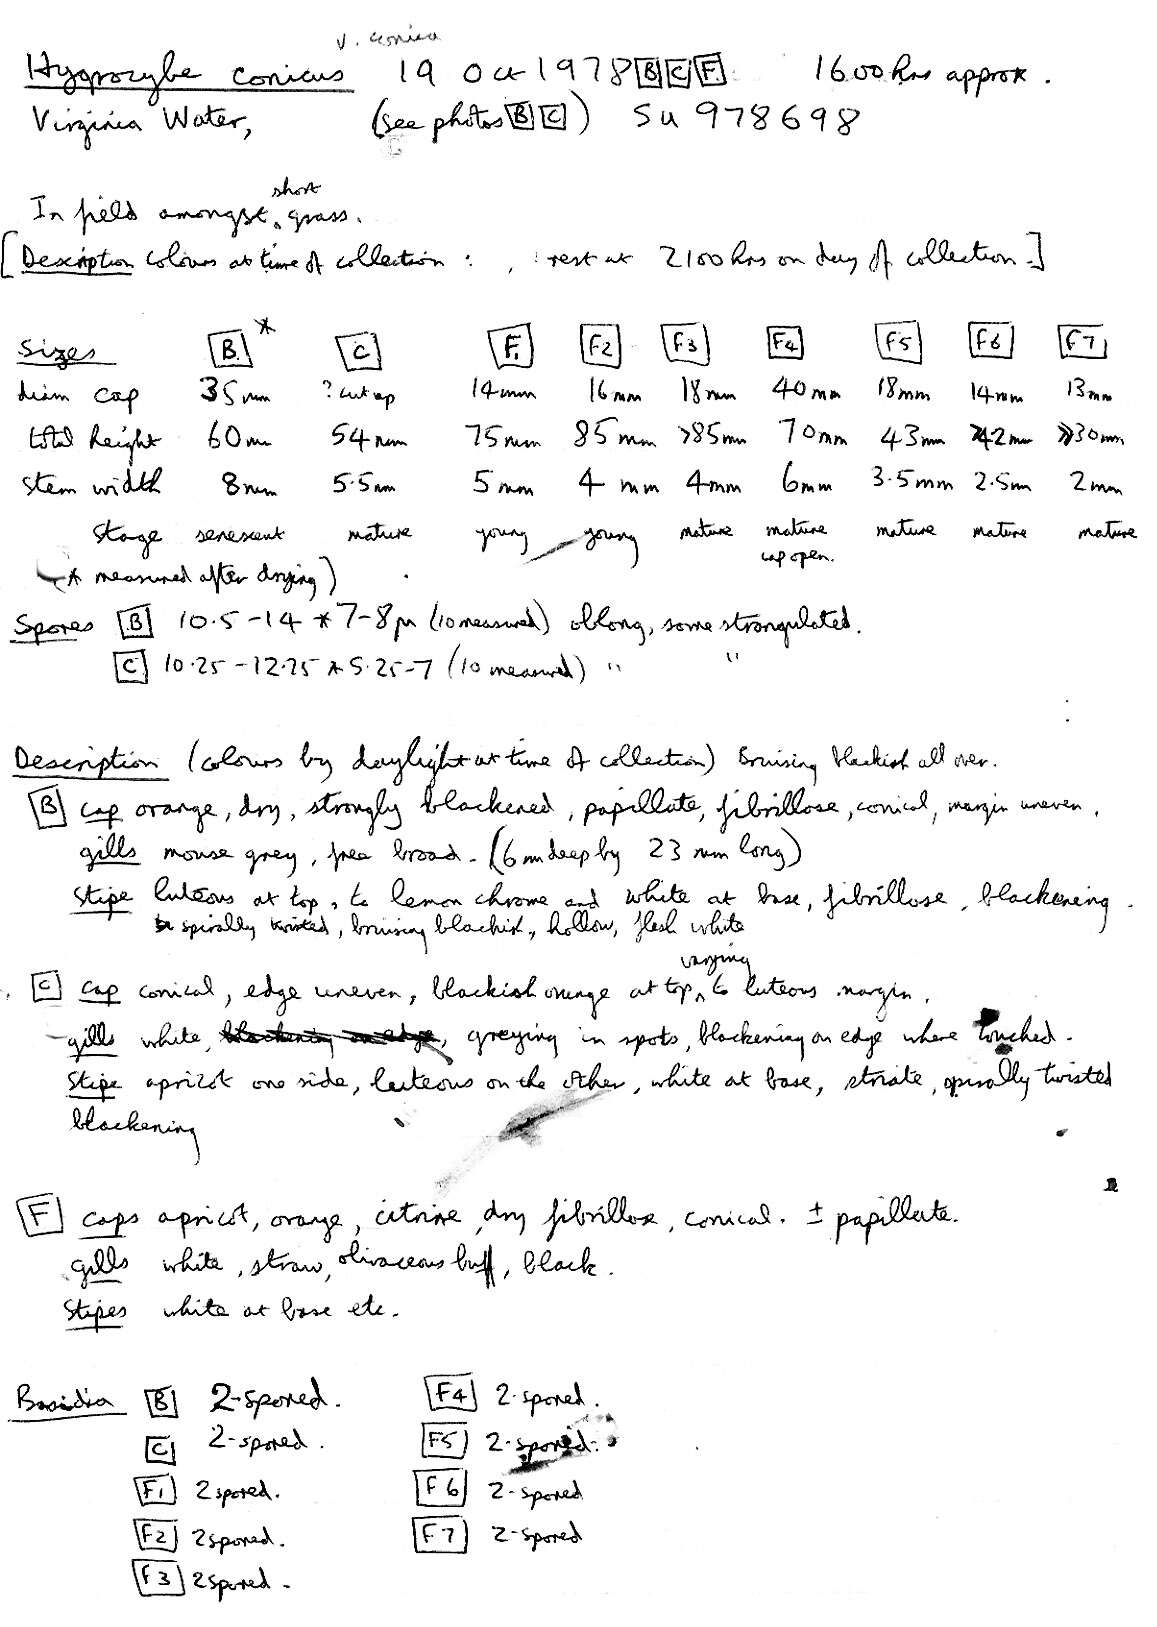 v. conica
Hygrocybe conicus 19 Oct 1978 B C F 1600 hrs approx.
Virginia Water, (see photos B C) SU 978698
short
In field amongst grass.
[Description colours at time of collection : , : rest at 2100 hrs on day of collection.]
Sizes B * C F1 F2 F3 F4 F5 F6 F7
diam cap 35mm ? cut up 14mm 16mm 18mm 40mm 18mm 14mm 13mm
total height 60mm 54mm 75mm 85mm >85mm 70mm 43mm >42mm >>30mm
stem width 8mm 5.5mm 5mm 4mm 4mm 6mm 3.5mm 2.5mm 2mm
Stage senescent mature young young mature mature mature mature mature
cap open.
(* measured after drying)
Spores B 10.5-14 * 7-8µ (10 measured) oblong, some strangulated.
C 10.25-12.75 * 5.25-7 (10 measured) " "
Description (colours by daylight at time of collection) Bruising blackish all over.
B cap orange, dry, strongly blackened, papillate, fibrillose, conical, margin uneven.
gills mouse grey, free broad. (6mm deep by 23 mm long)
Stipe luteous at top, to lemon chrome and white at base, fibrillose, blackening.
spirally twisted, bruising blackish, hollow, flesh white
varying
C cap conical, edge uneven, blackish orange at top, to luteous margin.
gills white, blackening on edge, greying in spots, blackening on edge where touched.
Stipe apricot one side, luteous on the other, white at base, striate, spirally twisted
blackening
F caps apricot, orange, citrine, dry fibrillose, conical. ± papillate.
gills white, straw, olivaceous buff, black.
Stipes white at base etc.
Basidia B 2-spored. F4 2-spored.
C 2-spored. F5 2-spored.
F1 2 spored. F6 2-spored
F2 2 spored. F7 2-spored
F3 2 spored.